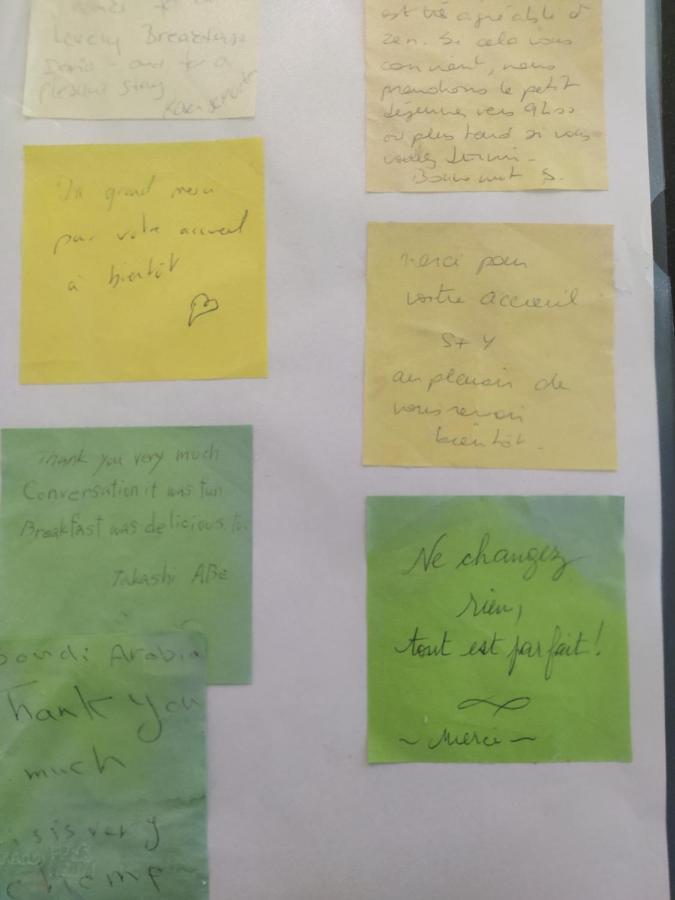 Lovely Breakfast
and for a
pleasant stay
est très agréable et
zen. Si cela vous
convient, nous
prendrons le petit
déjeuner vers 9h30
ou plus tard si vous
voulez dormir.
Bonne nuit S.
Un grand merci
pour votre accueil
à bientôt
merci pour
votre accueil
S+Y
au plaisir de
vous revoir
bientôt.
Thank you very much
Conversation it was fun
Breakfast was delicious to.
Takashi ABe
Ne changez
rien,
tout est parfait!
~ Merci ~
Arabia
Thank you
much
very